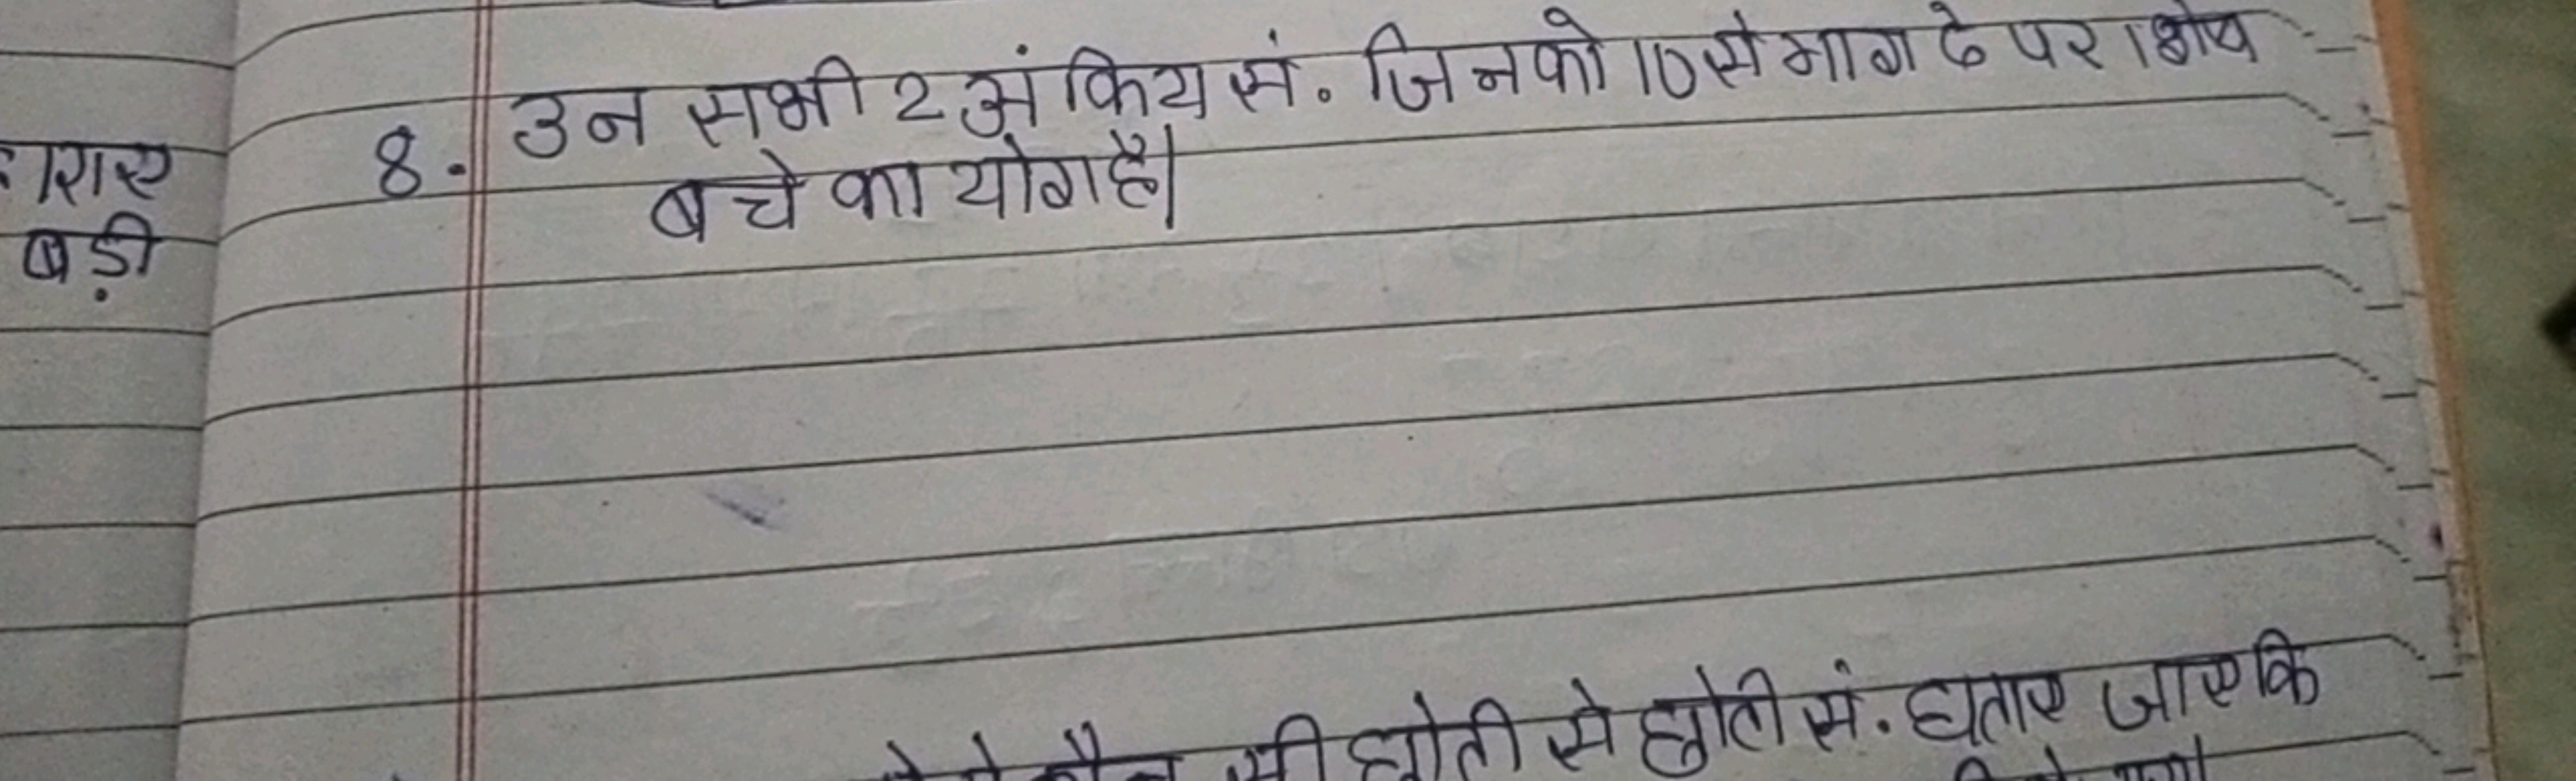 शाए
बड़ी
8. उन सभी 2 अंकिय सं. जिनको 10 से भाग दे पर 1 शेष
बचे का योग है।
सी छोटी से छोटी सं. घताए जाए कि